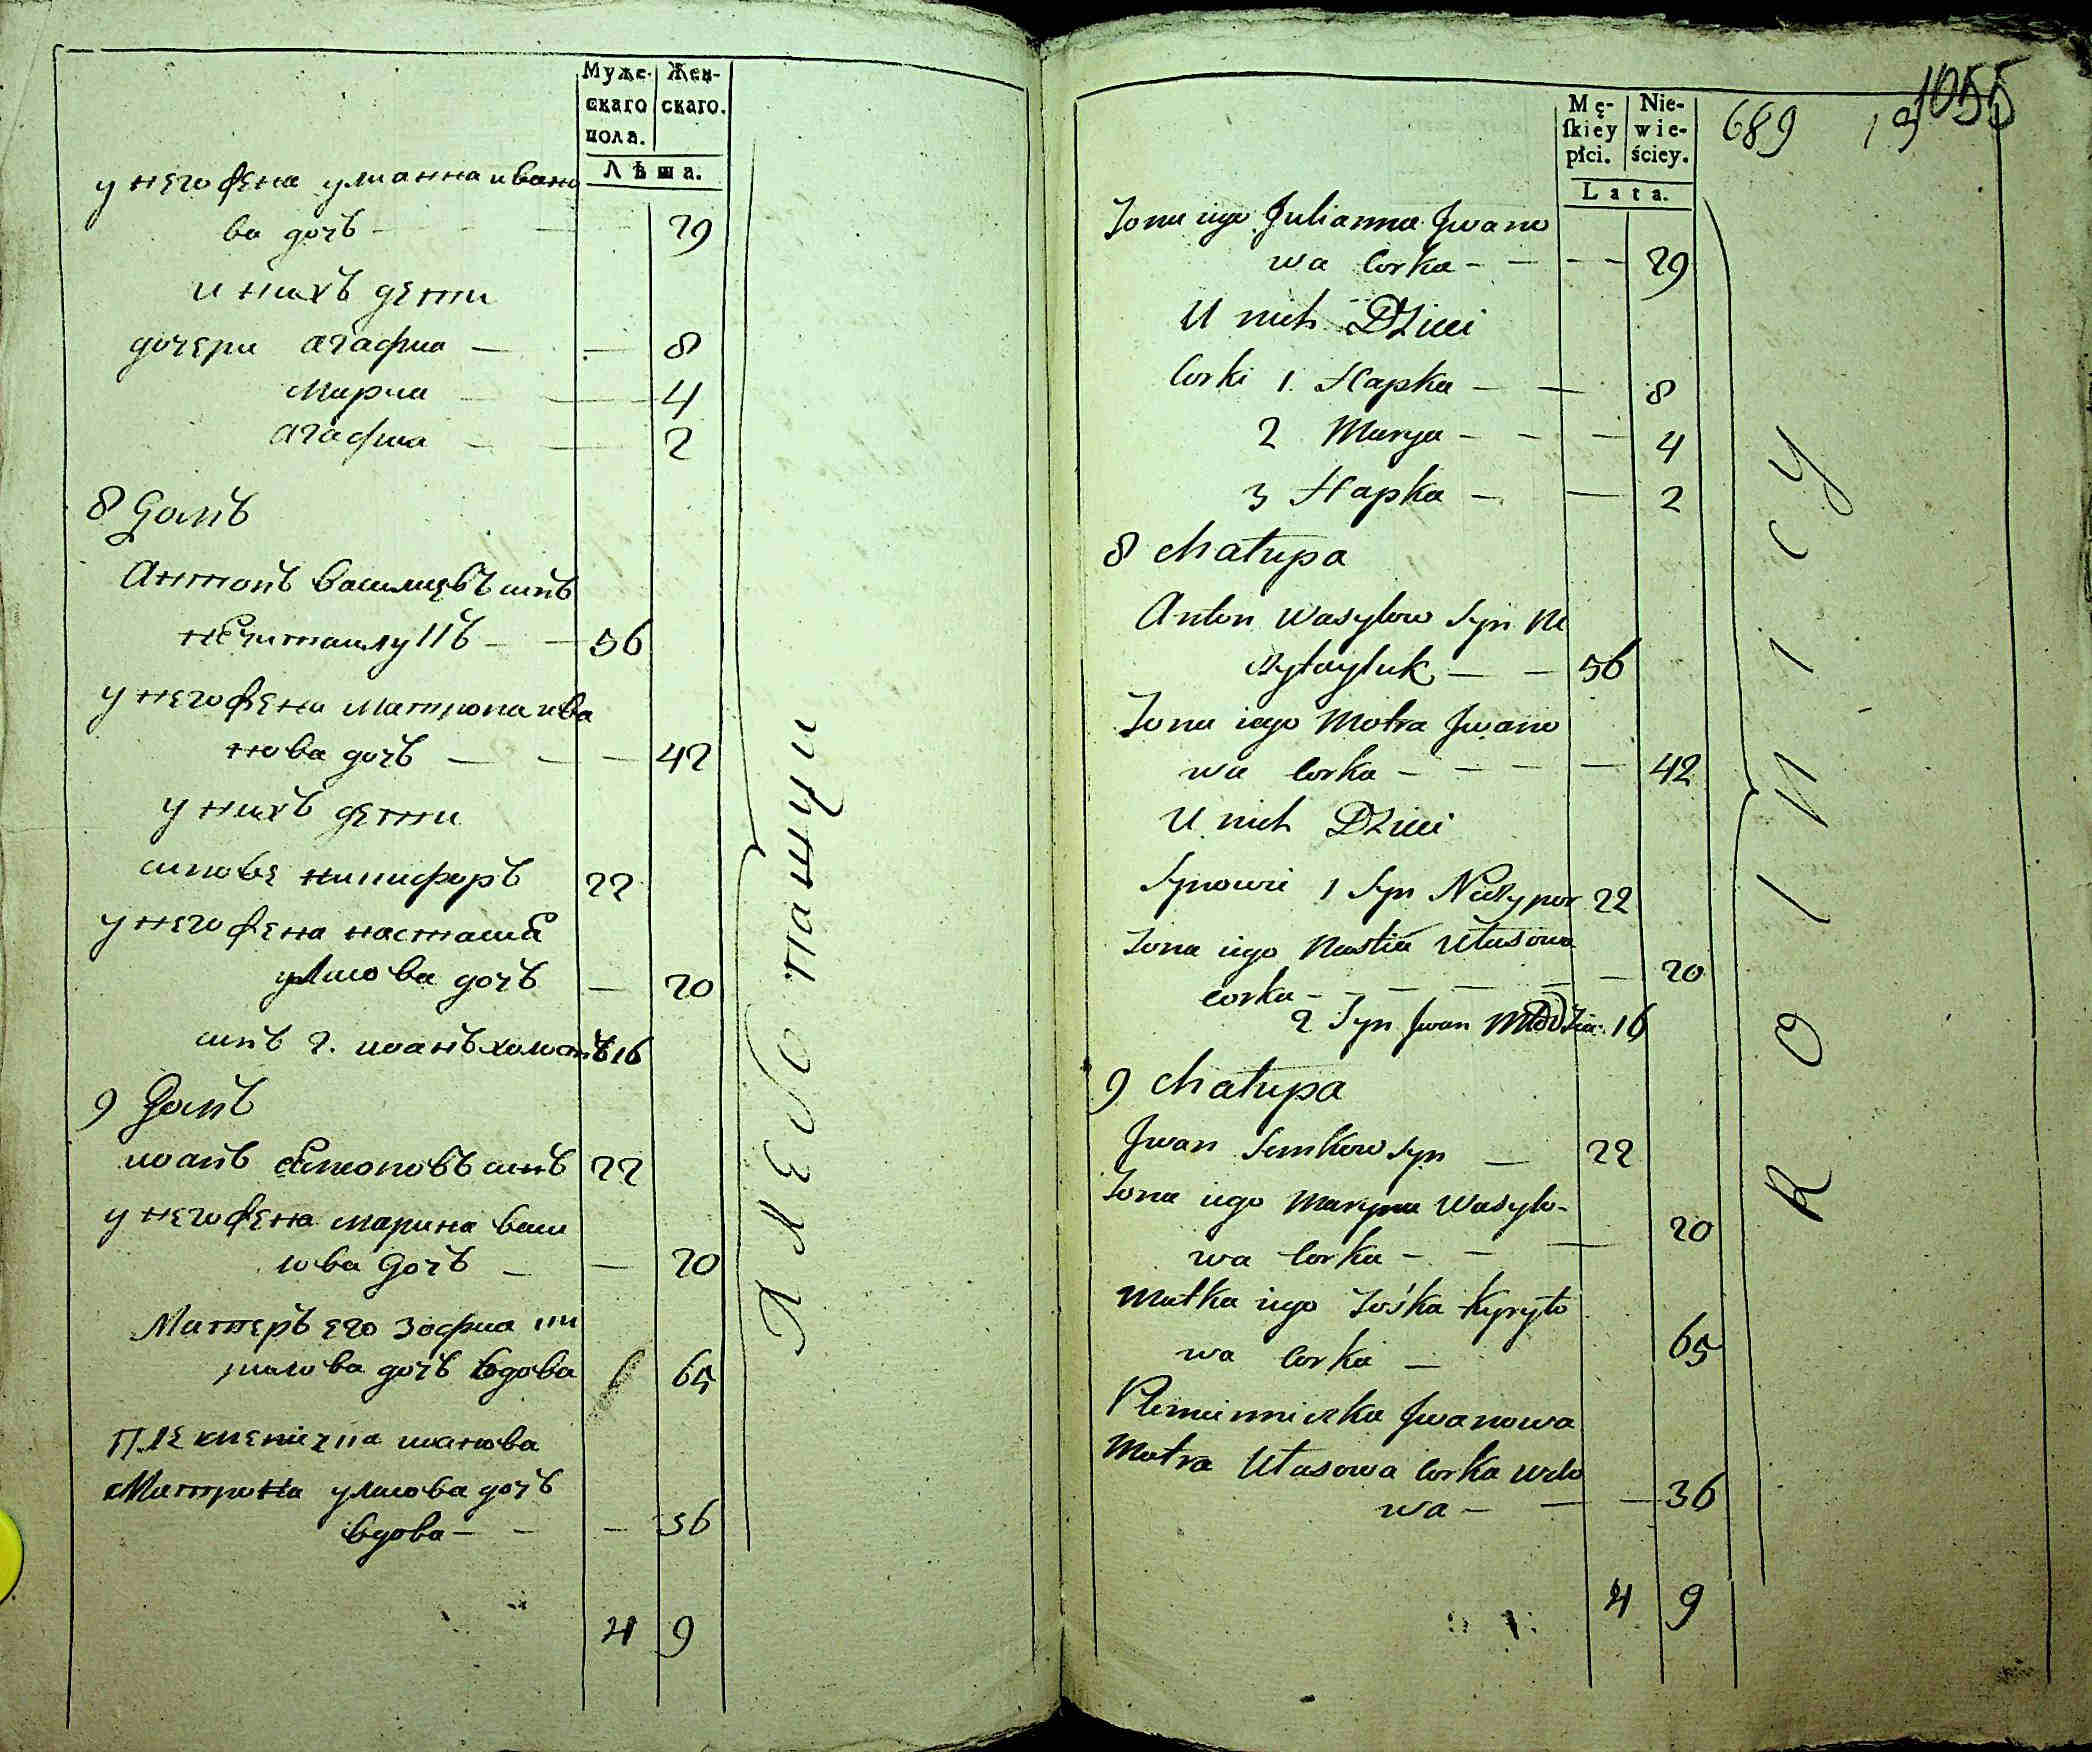 Муже-
скаго
пола.
Жен-
скаго.
Лѣта.
у него жена улианна ивано
ва дочъ - - - 29
у нихъ дети
дочери агафиа — — 8
Мариа — — 4
агафиа — — 2
8 Домъ
Антонъ василиевъ синъ
— — 56
у него жена матрона ива
нова дочъ — — — 42
у нихъ дети
синове никифоръ 22
у него жена настасиа
уласова дочъ — 20
синъ 2. иоанъ холостъ 16
9 Домъ
иоанъ симоновъ синъ 22
у него жена марина васи
лова дочъ — — 20
Матеръ его зофиа ки
рилова дочъ вдова 65
иванова
Матрона уласова дочъ
вдова — — — 36
4 9
хлебопашци
Mę-
ſkiey
płci.
Nie-
wie-
ściey.
Lata.
689
19
1055
Żona iego Julianna Jwano
wa Corka - — — — 29
U nich Dzieci
Corki 1. Hapka — — 8
2 Marya - - — 4
3 Hapka — — 2
8 chałupa
Anton Wasylow Syn Ni
czytayluk — — 56
Żona iego Motra Jwano
wa Corka - — — — 42
U nich Dzieci
Synowie 1 Syn Niczypor 22
Żona iego Nastia Ułasowa
corka - - — — — 20
2 Syn Jwan 16
9 chałupa
Jwan Semkow Syn — 22
Żona iego Maryna Wasylo-
wa Corka - — — 20
Matka iego Zośka Kyryło
wa Corka — 65
Plemienniczka Jwanowa
Motra Ułasowa Corka wdo
wa — — — 36
4 9
ROLNICY